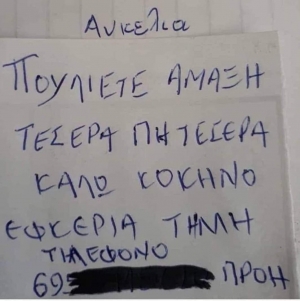 Ανκελια
ΠΟΥΛΙΕΤΕ ΑΜΑΞΗ
ΤΕΣΕΡΑ ΠΗ ΤΕΣΕΡΑ
ΚΑΛΟ ΚΟΚΗΝΟ
ΕΦΚΕΡΙΑ ΤΗΜΗ
ΤΙΛΕΦΟΝΟ
695 ΠΡΟΗ